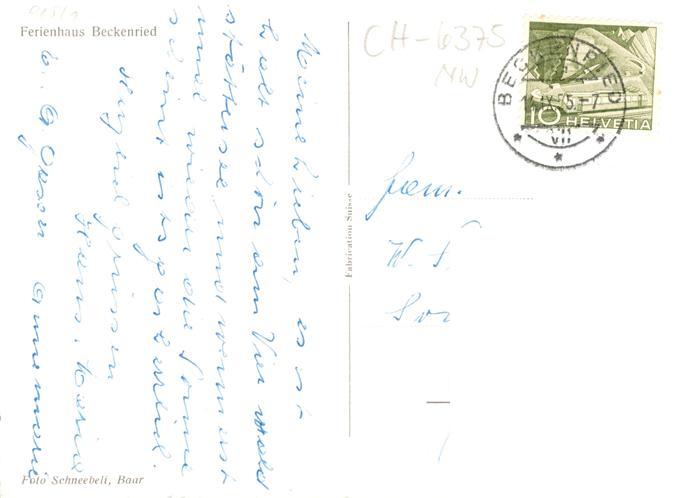 Ferienhaus Beckenried
Meine Lieben, es ist
halt schön am Vierwald
stättersee und wenn erst
mal wieder die Sonne
scheint ists perfekt.
Herzlich grüssen
Hans
Annemarie
Foto Schneebeli, Baar
Fabrication Suisse
CH-6375
NW
BECKENRIED
10 HELVETIA
Fam.
W.